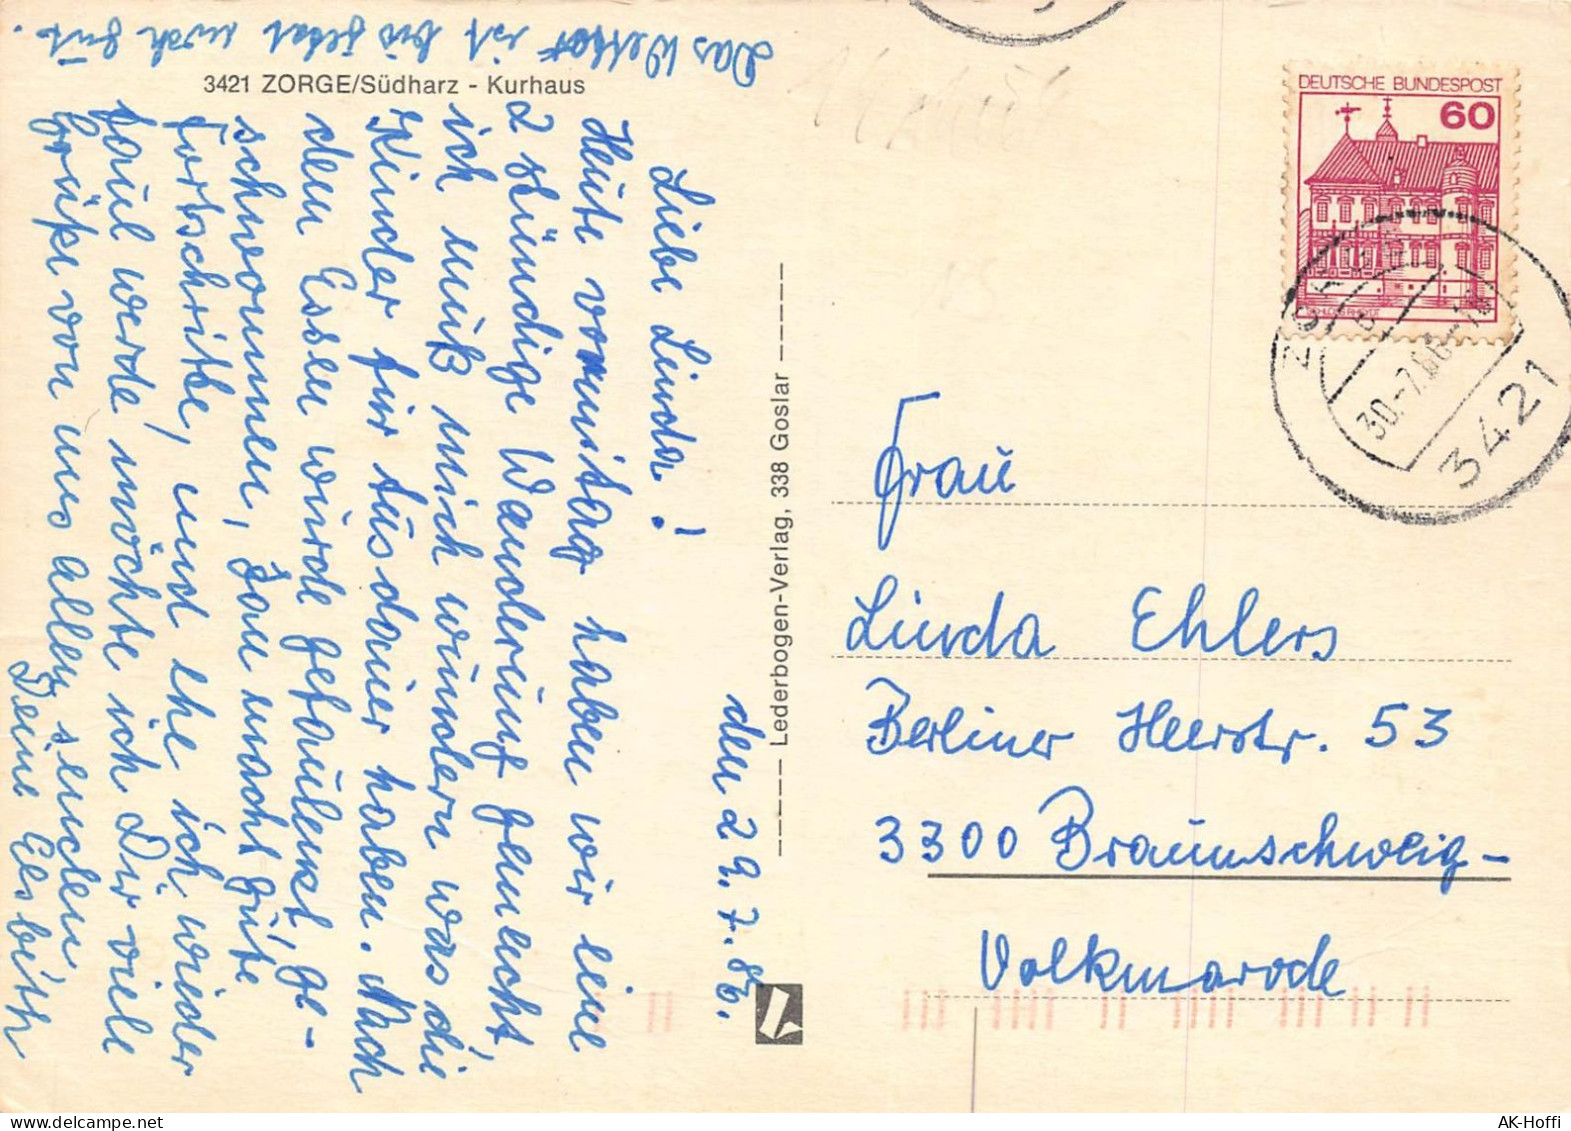 3421 ZORGE/Südharz - Kurhaus
den 29.7.86.
Liebe Linda!
Heute vormitag haben wir eine
2 stündige Wanderung gemacht,
ich muß mich wundern was die
Kinder für Ausdauer haben. Nach
dem Essen wurde gefaulenzt, ge-
schwommen, Jan macht gute
Fortschritte, und ehe ich wieder
faul werde möchte ich Dir viele
Grüße von uns allen senden
Deine Elsbeth
Das Wetter ist bis jetzt noch gut.
Lederbogen-Verlag, 338 Goslar
DEUTSCHE BUNDESPOST
60
SCHLOSS RHEYDT
ZORGE
30.-7.86-
3421
Frau
Linda Ehlers
Berliner Heerstr. 53
3300 Braunschweig-
Volkmarode
AK-Hoffi